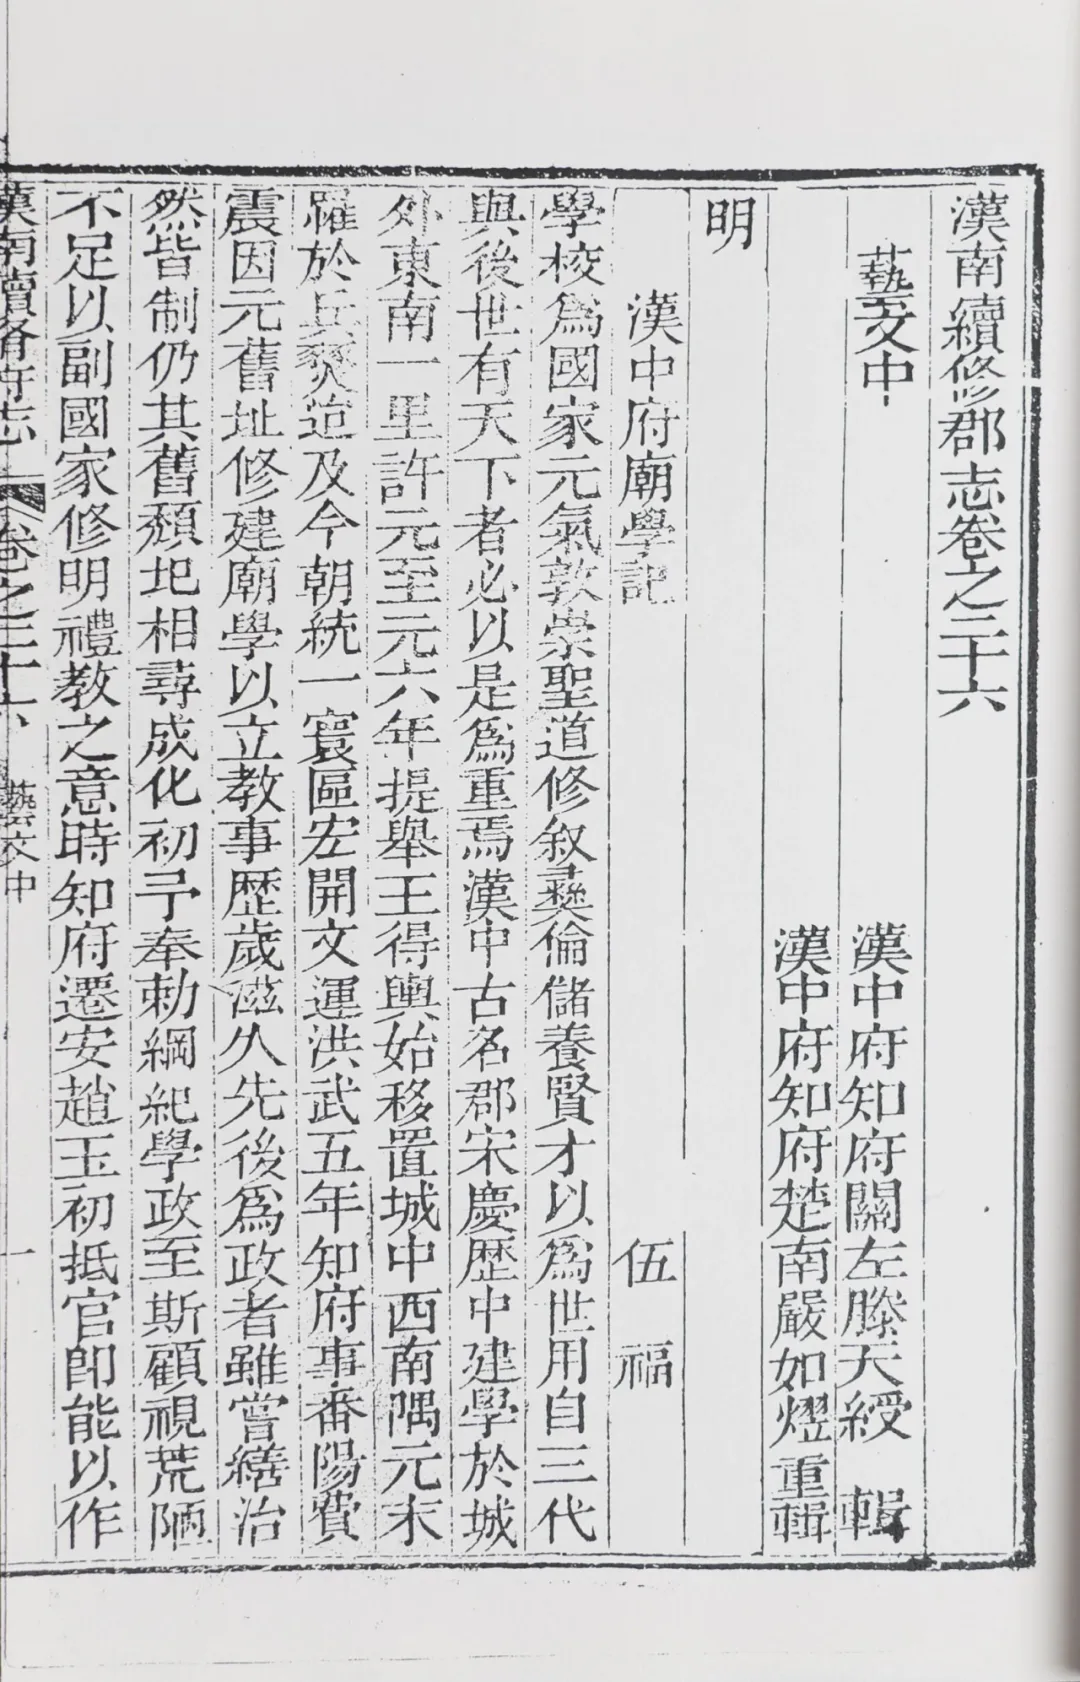 漢南續修郡志卷之二十六
藝文中
漢中府知府關左滕天綬 輯
漢中府知府楚南嚴如熤重輯
明
漢中府廟學記 伍 福
學校爲國家元氣敦崇聖道修叙彝倫儲養賢才以爲世用自三代
與後世有天下者必以是爲重焉漢中古名郡宋慶歷中建學於城
外東南一里許元至元六年提舉王得輿始移置城中西南隅元末
罹於兵燹迨及今朝統一寰區宏開文運洪武五年知府事番陽費
震因元舊址修建廟學以立教事歷歲滋久先後爲政者雖嘗繕治
然皆制仍其舊頹圯相尋成化初予奉勅綱紀學政至斯顧視荒陋
不足以副國家修明禮教之意時知府遷安趙玉初抵官即能以作
漢南續修府志 卷之二十六 藝文中 一